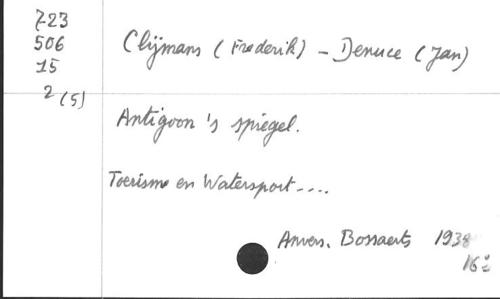 723
506
15
2 (5)
Clijmans (Frederik) - Denuce (Jan)
Antigoon's spiegel.
Toerisme en Watersport....
Anvers. Bossaerts 1938
16°